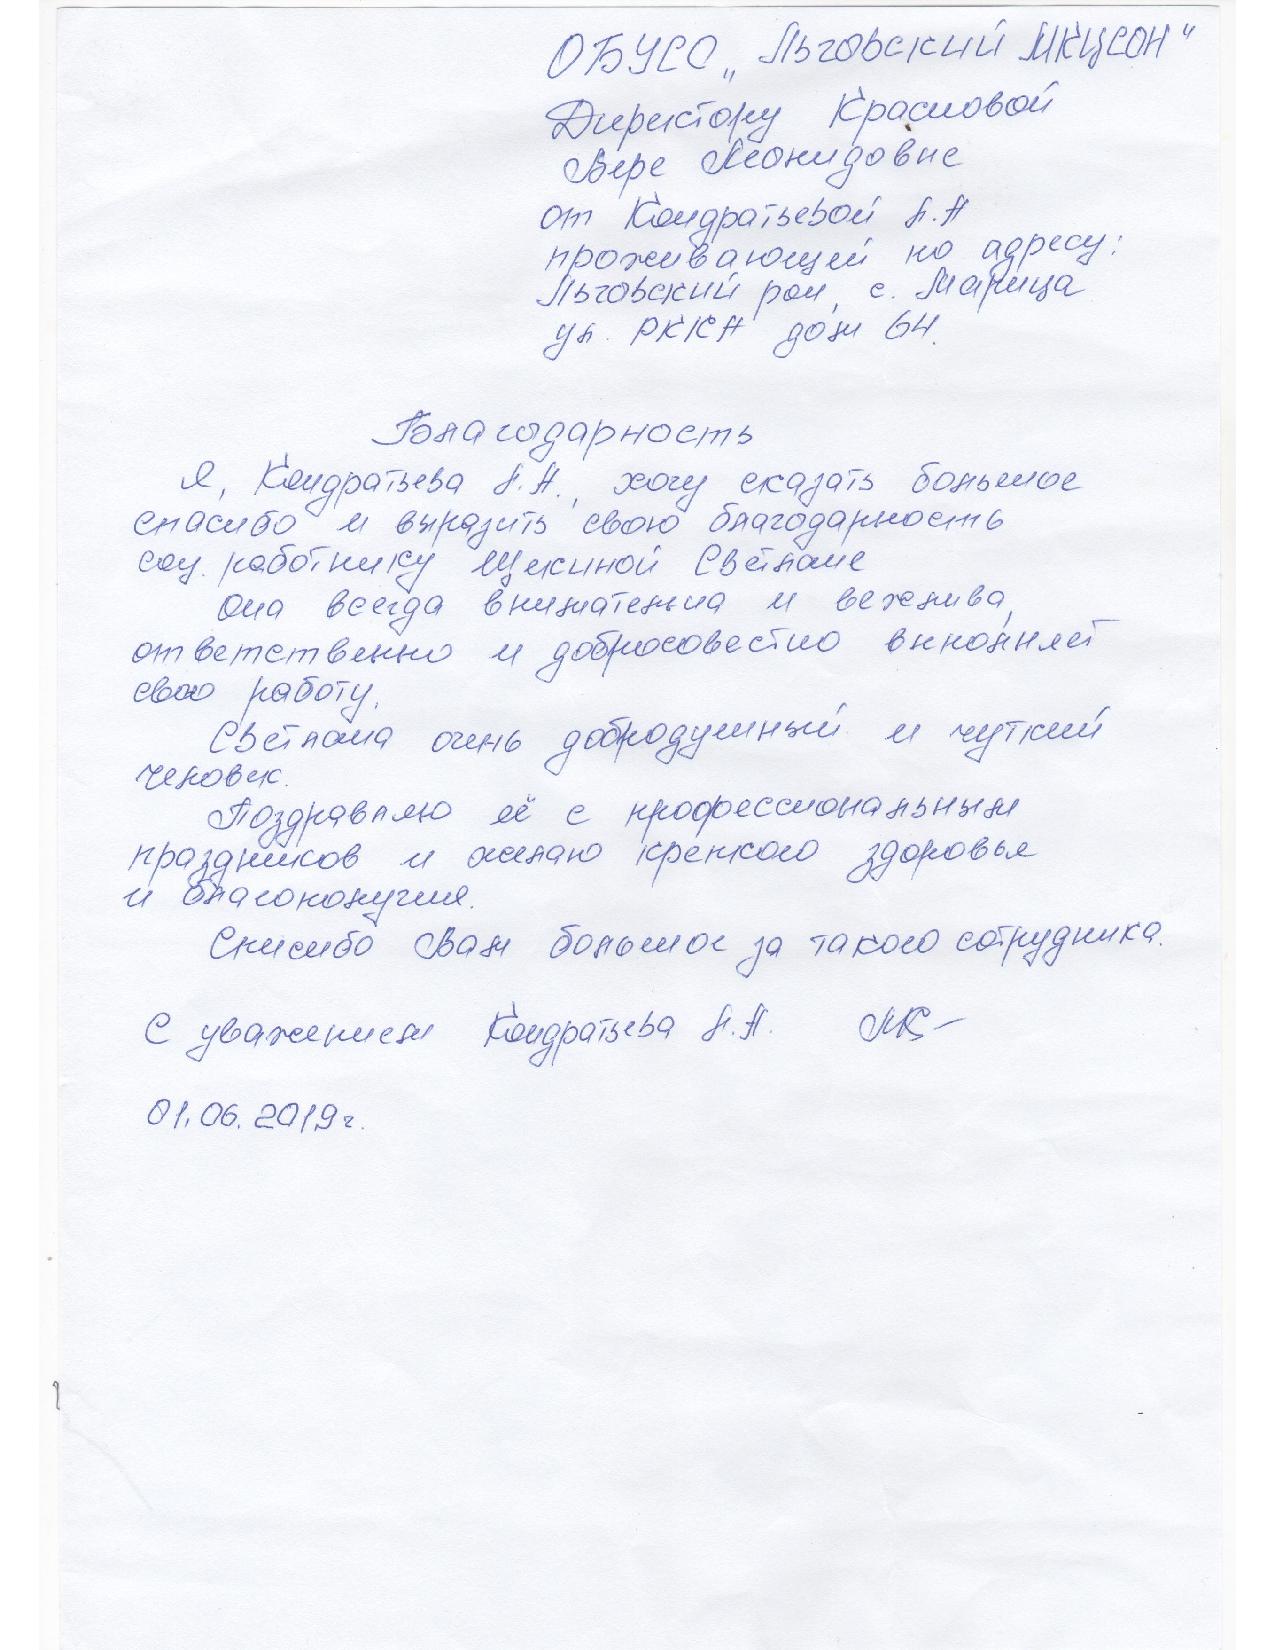 ОБУСО „Льговский МКЦСОН"
Директору Красновой
Вере Леонидовне
от Кондратьевой Л.А
проживающей по адресу:
Льговский рон, с. Марица
ул. РККА дом 64.
Благодарность
Я, Кондратьева Л.А., хочу сказать большое
спасибо и выразить свою благодарность
соц. работнику Щекиной Светлане
Она всегда внимательна и вежлива,
ответственно и добросовестно выполняет
свою работу.
Светлана очень добродушный и чуткий
человек.
Поздравляю её с профессиональным
праздников и желаю крепкого здоровья
и благополучия.
Списибо Вам большое за такого сотрудника.
С уважением Кондратьева Л.А.
01.06.2019г.